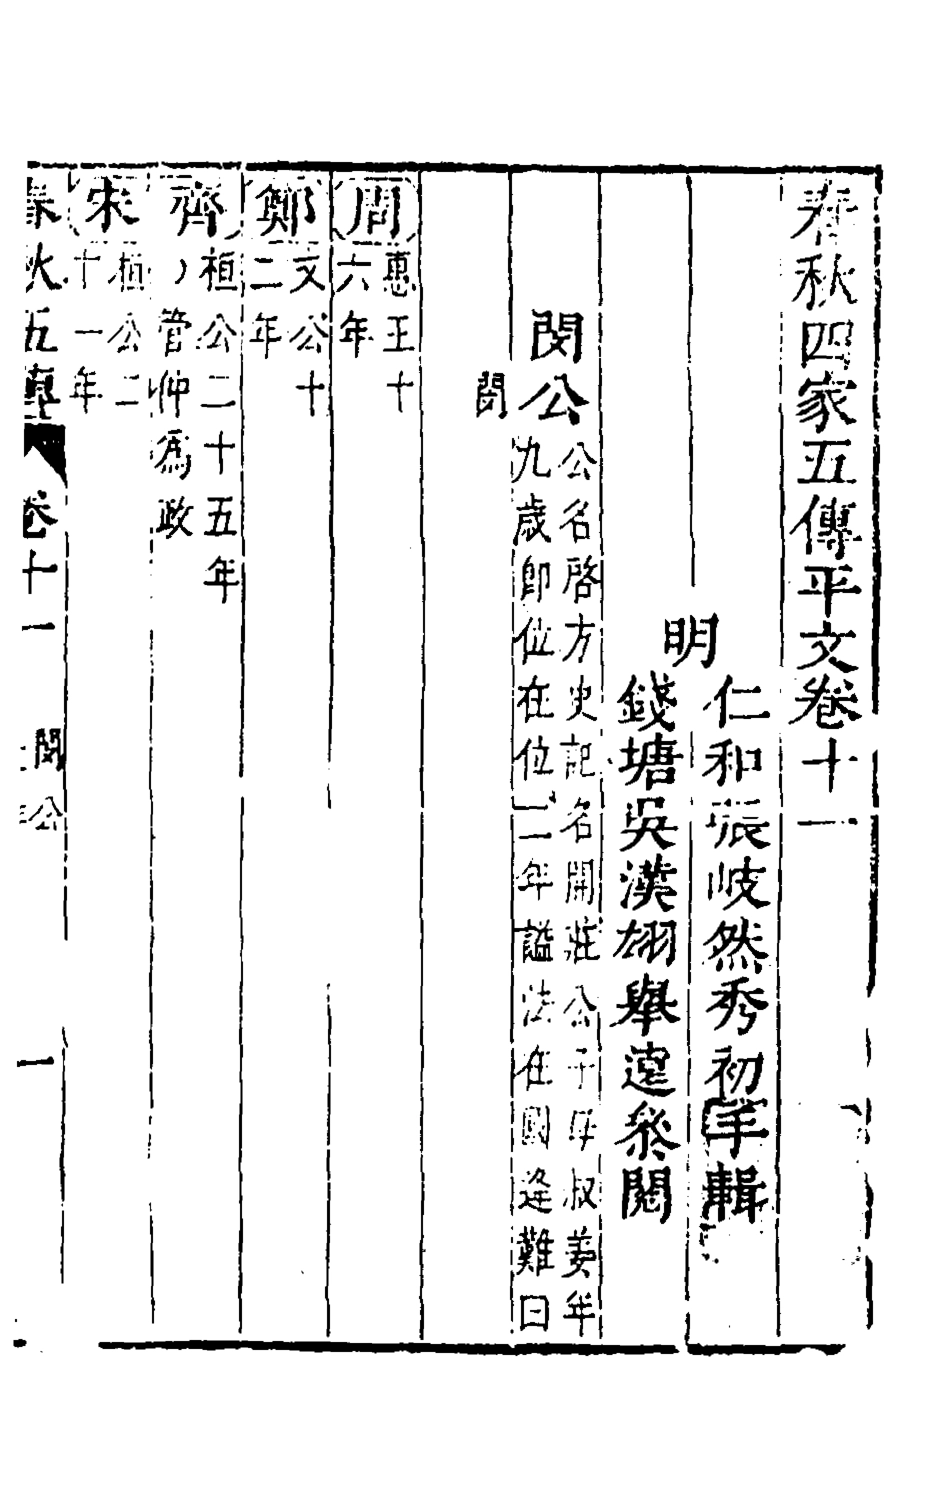 春秋四家五傳平文卷十一
明
仁和張岐然秀初甫輯
錢塘吳漢翊舉遠叅閱
閔公
公名啓方史記名開莊公子母叔姜年
九歲卽位在位二年謚法在國逢難曰
閔
周
惠王十
六年
鄭
文公十
二年
齊
桓公二十五年
管仲爲政
宋
桓公二
十一年
春秋五傳
卷十一
閔公
一